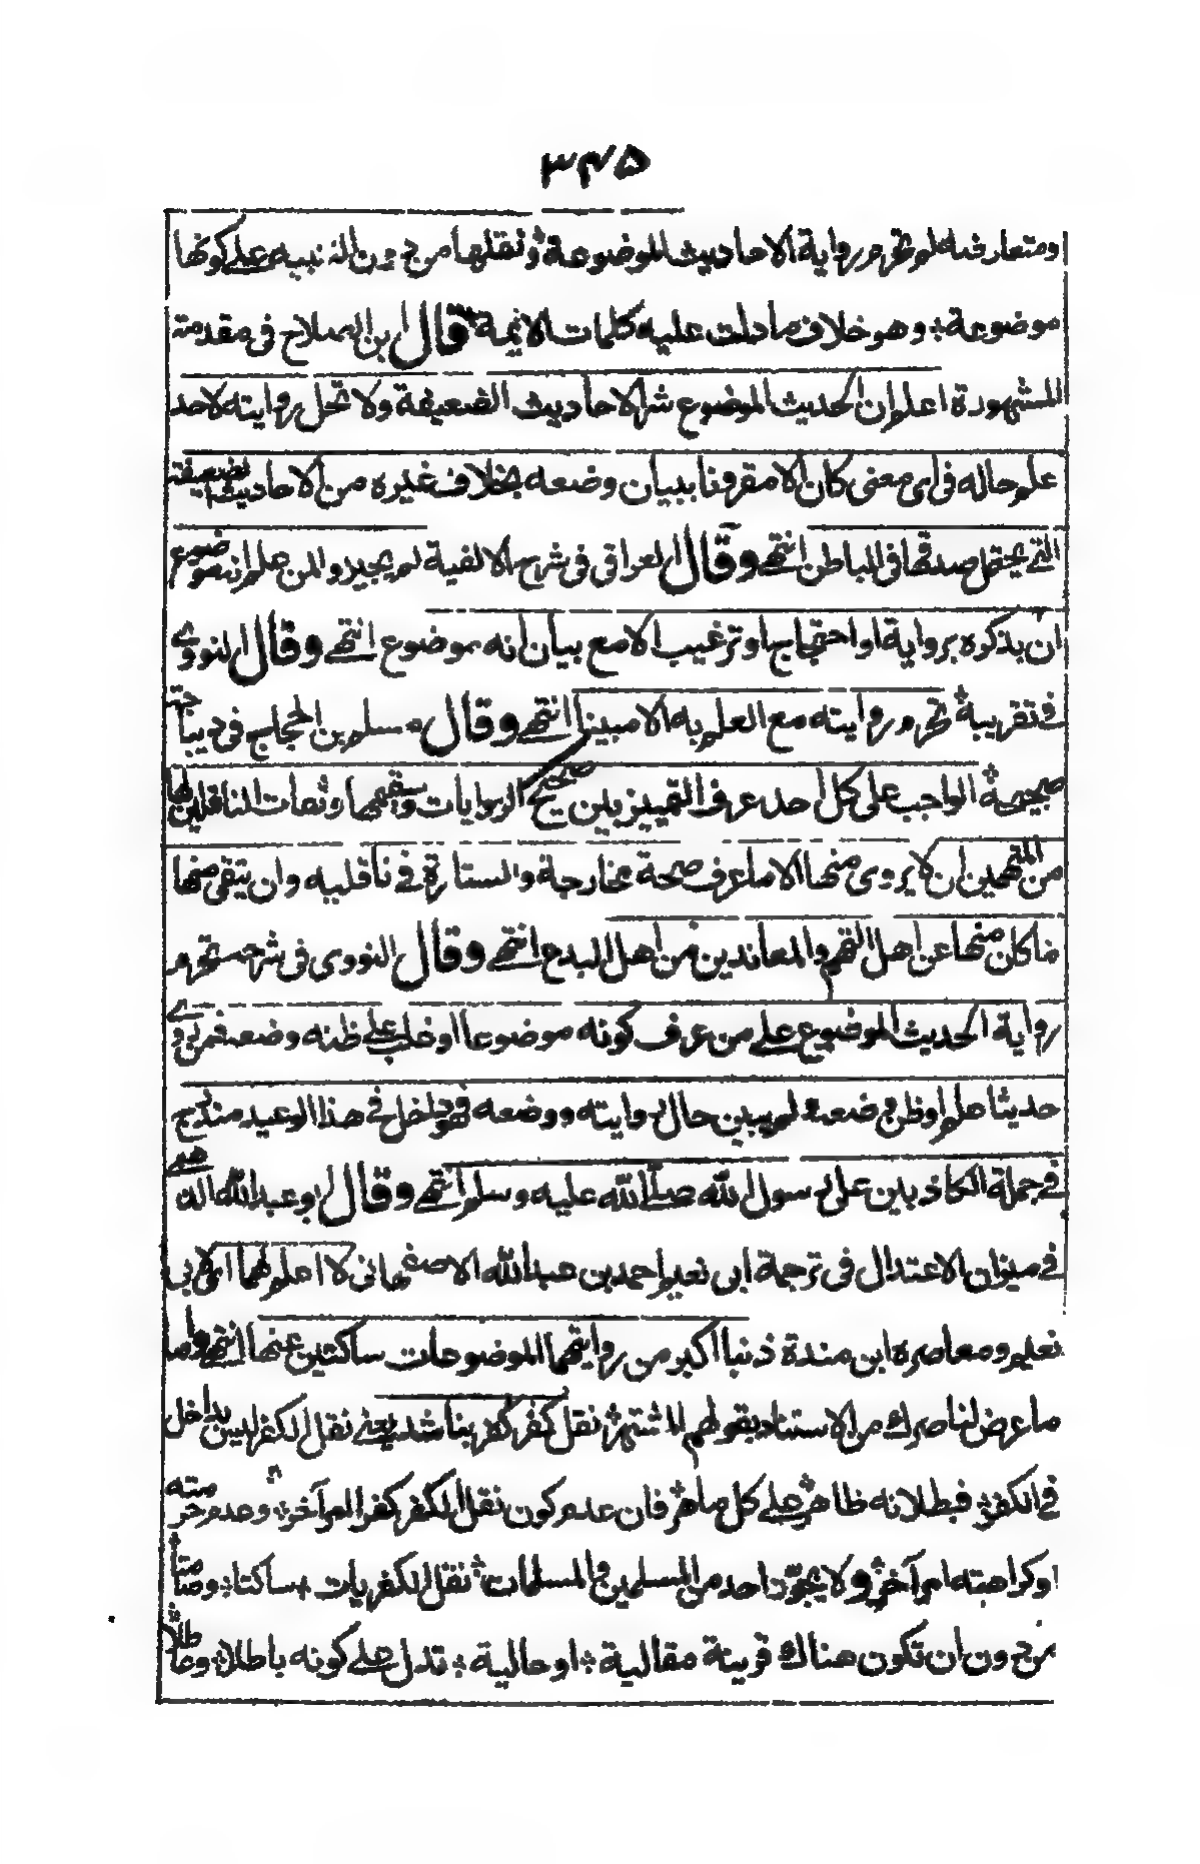 ۳۴۵
ومتعارفه علم تحرم رواية الاحاديث الموضوعة ونقلها من دون التنبيه على كونها
موضوعة؛ وهو خلاف ما دلت عليه كلمات الائمة قال ابن الصلاح فى مقدمته
المشهورة اعلم ان الحديث الموضوع شر الاحاديث الضعيفة ولا تحل روايته لاحد
علم حاله فى اى معنى كان الا مقرونا ببيان وضعه بخلاف غيره من الاحاديث الضعيفة
التي يحتمل صدقها فى الباطن انتهى وقال العراقى فى شرح الالفية لم يجيزوا لمن علم انه موضوع
ان يذكره برواية او احتجاج او ترغيب الا مع بيان انه موضوع انتهى وقال النووى
فى تقريبه تحرم روايته مع العلم به الا مبينا انتهى وقال مسلم بن الحجاج فى ديباجة
صحيحه الواجب على كل احد عرف التمييز بين صحيح الروايات وسقيمها وثقات الناقلين لها
من المتهمين ان لا يروى منها الا ما عرف صحة مخارجة والستارة فى ناقليه وان يتقى منها
ما كان منها عن اهل التهم والمعاندين من اهل البدع انتهى وقال النووى فى شرحه تحرم
رواية الحديث الموضوع على من عرف كونه موضوعا او غلب على ظنه وضعه فمن روى
حديثا علم او ظن وضعه ولم يبين حال روايته ووضعه فهو داخل فى هذا الوعيد مندرج
فى جملة الكاذبين على رسول الله صلى الله عليه وسلم انتهى وقال ابو عبد الله الذهبى
فى ميزان الاعتدال فى ترجمة ابى نعيم احمد بن عبد الله الاصفهانى لا اعلم لهما اى لابى
نعيم ومعاصره ابن مندة ذنبا اكبر من روايتهما الموضوعات ساكتين عنها انتهى واما
ما عرض لناصرك من الاستناد بقولهم المشتهر نقل كفر كفر بنا شد يعنى نقل الكفر ليس بداخل
فى الكفر؛ فبطلانه ظاهر على كل ماهر فان عدم كون نقل الكفر كفرا امر آخر؛ وعدم حرمته
او كراهته امر آخر ولا يجوز احد من المسلمين والمسلمات نقل الكفريات ساكتا؛ وصامتا؛
من دون ان تكون هناك قرينة مقالية؛ او حالية؛ تدل على كونه باطلا؛ وعاطلا؛